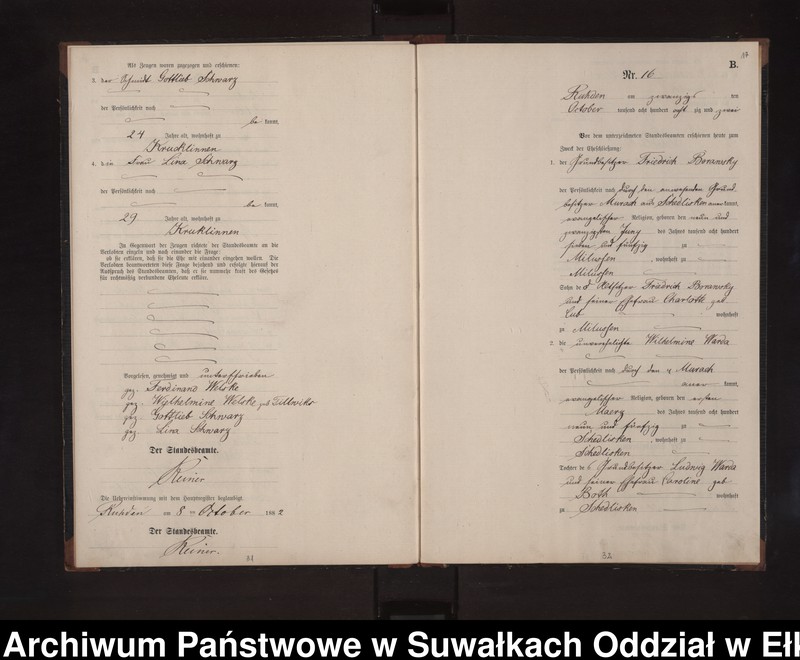 Als Zeugen waren zugezogen und erschienen:
3. der Schmidt Gottlieb Schwarz
der Persönlichkeit nach
be kannt,
24 Jahre alt, wohnhaft zu
Kruklinnen
4. Frau Lina Schwarz
der Persönlichkeit nach
be kannt,
29 Jahre alt, wohnhaft zu
Kruklinnen
In Gegenwart der Zeugen richtete der Standesbeamte an die
Verlobten einzeln und nach einander die Frage:
ob sie erklären, daß sie die Ehe mit einander eingehen wollen. Die
Verlobten beantworteten diese Frage bejahend und erfolgte hierauf der
Ausspruch des Standesbeamten, daß er sie nunmehr kraft des Gesetzes
für rechtmäßig verbundene Eheleute erkläre.
Vorgelesen, genehmigt und unterschrieben
gez. Ferdinand Welske
gez. Wilhelmine Welske geb
gez. Gottlieb Schwarz
gez. Lina Schwarz
Der Standesbeamte.
Keiner
Die Uebereinstimmung mit dem Hauptregister beglaubigt
am 8 ten October 1882
Der Standesbeamte.
Keiner.
31
B.
Nr. 16
am zwanzigs ten
October tausend acht hundert acht zig und zwei
Vor dem unterzeichneten Standesbeamten erschienen heute zum
Zweck der Eheschließung:
1. der Grundbesitzer Friedrich Borawsky
der Persönlichkeit nach durch den anwesenden Grund
besitzer Murach aus Schedlisken aner kannt,
evangelischer Religion, geboren den neun und
zwanzigsten Juny des Jahres tausend acht hundert
sieben und fünfzig zu
Milussen, wohnhaft zu
Milussen
Sohn des Friedrich Borawsky
und seiner Ehefrau Charlotte geb
wohnhaft
zu Milussen
2. die unverehelichte Wilhelmine Warda
der Persönlichkeit nach durch den Murach
aner kannt,
evangelischer Religion, geboren den ersten
Maerz des Jahres tausend acht hundert
neun und fünfzig zu
Schedlisken, wohnhaft zu
Schedlisken
Tochter des Grundbesitzer Ludwig Warda
und seiner Ehefrau Caroline geb
Both wohnhaft
zu Schedlisken
32
Archiwum Państwowe w Suwałkach Oddział w Ełk